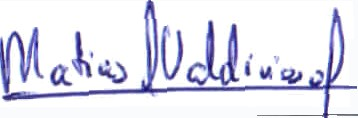 Matias Valdivieso